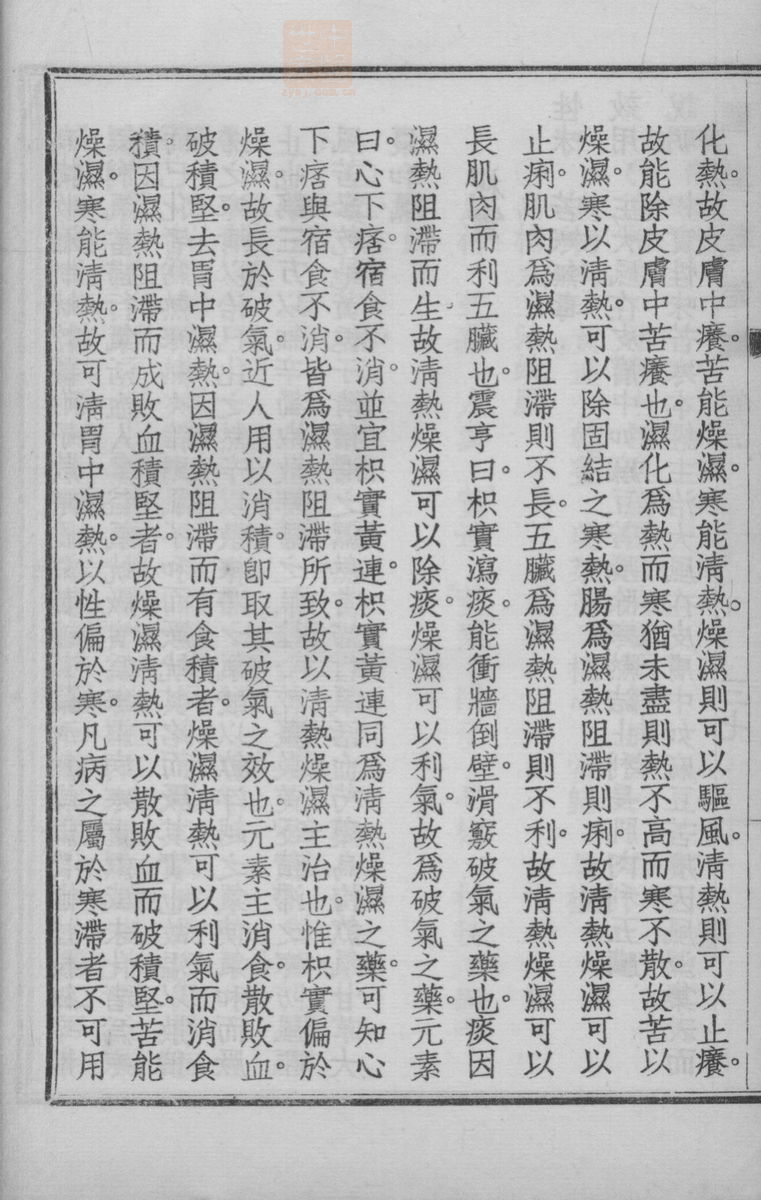 化熱。故皮膚中癢。苦能燥濕。寒能清熱。燥濕則可以驅風。清熱則可以止癢。
故能除皮膚中苦癢也。濕化爲熱而寒猶未盡則熱不高而寒不散。故苦以
燥濕。寒以清熱。可以除固結之寒熱。腸爲濕熱阻滯則痢。故清熱燥濕可以
止痢。肌肉爲濕熱阻滯則不長。五臟爲濕熱阻滯則不利。故清熱燥濕可以
長肌肉而利五臟也。震亨曰。枳實瀉痰。能衝牆倒壁。滑竅破氣之藥也。痰因
濕熱阻滯而生。故清熱燥濕可以除痰。燥濕可以利氣。故爲破氣之藥。元素
曰。心下痞。宿食不消。並宜枳實黃連。枳實黃連同爲清熱燥濕之藥。可知心
下痞與宿食不消。皆爲濕熱阻滯所致。故以清熱燥濕主治也。惟枳實偏於
燥濕。故長於破氣。近人用以消積。卽取其破氣之效也。元素主消食。散敗血。
破積堅。去胃中濕熱。因濕熱阻滯而有食積者。燥濕清熱可以利氣而消食
積。因濕熱阻滯而成敗血積堅者。故燥濕清熱可以散敗血而破積堅。苦能
燥濕。寒能清熱。故可清胃中濕熱。以性偏於寒。凡病之屬於寒滯者不可用